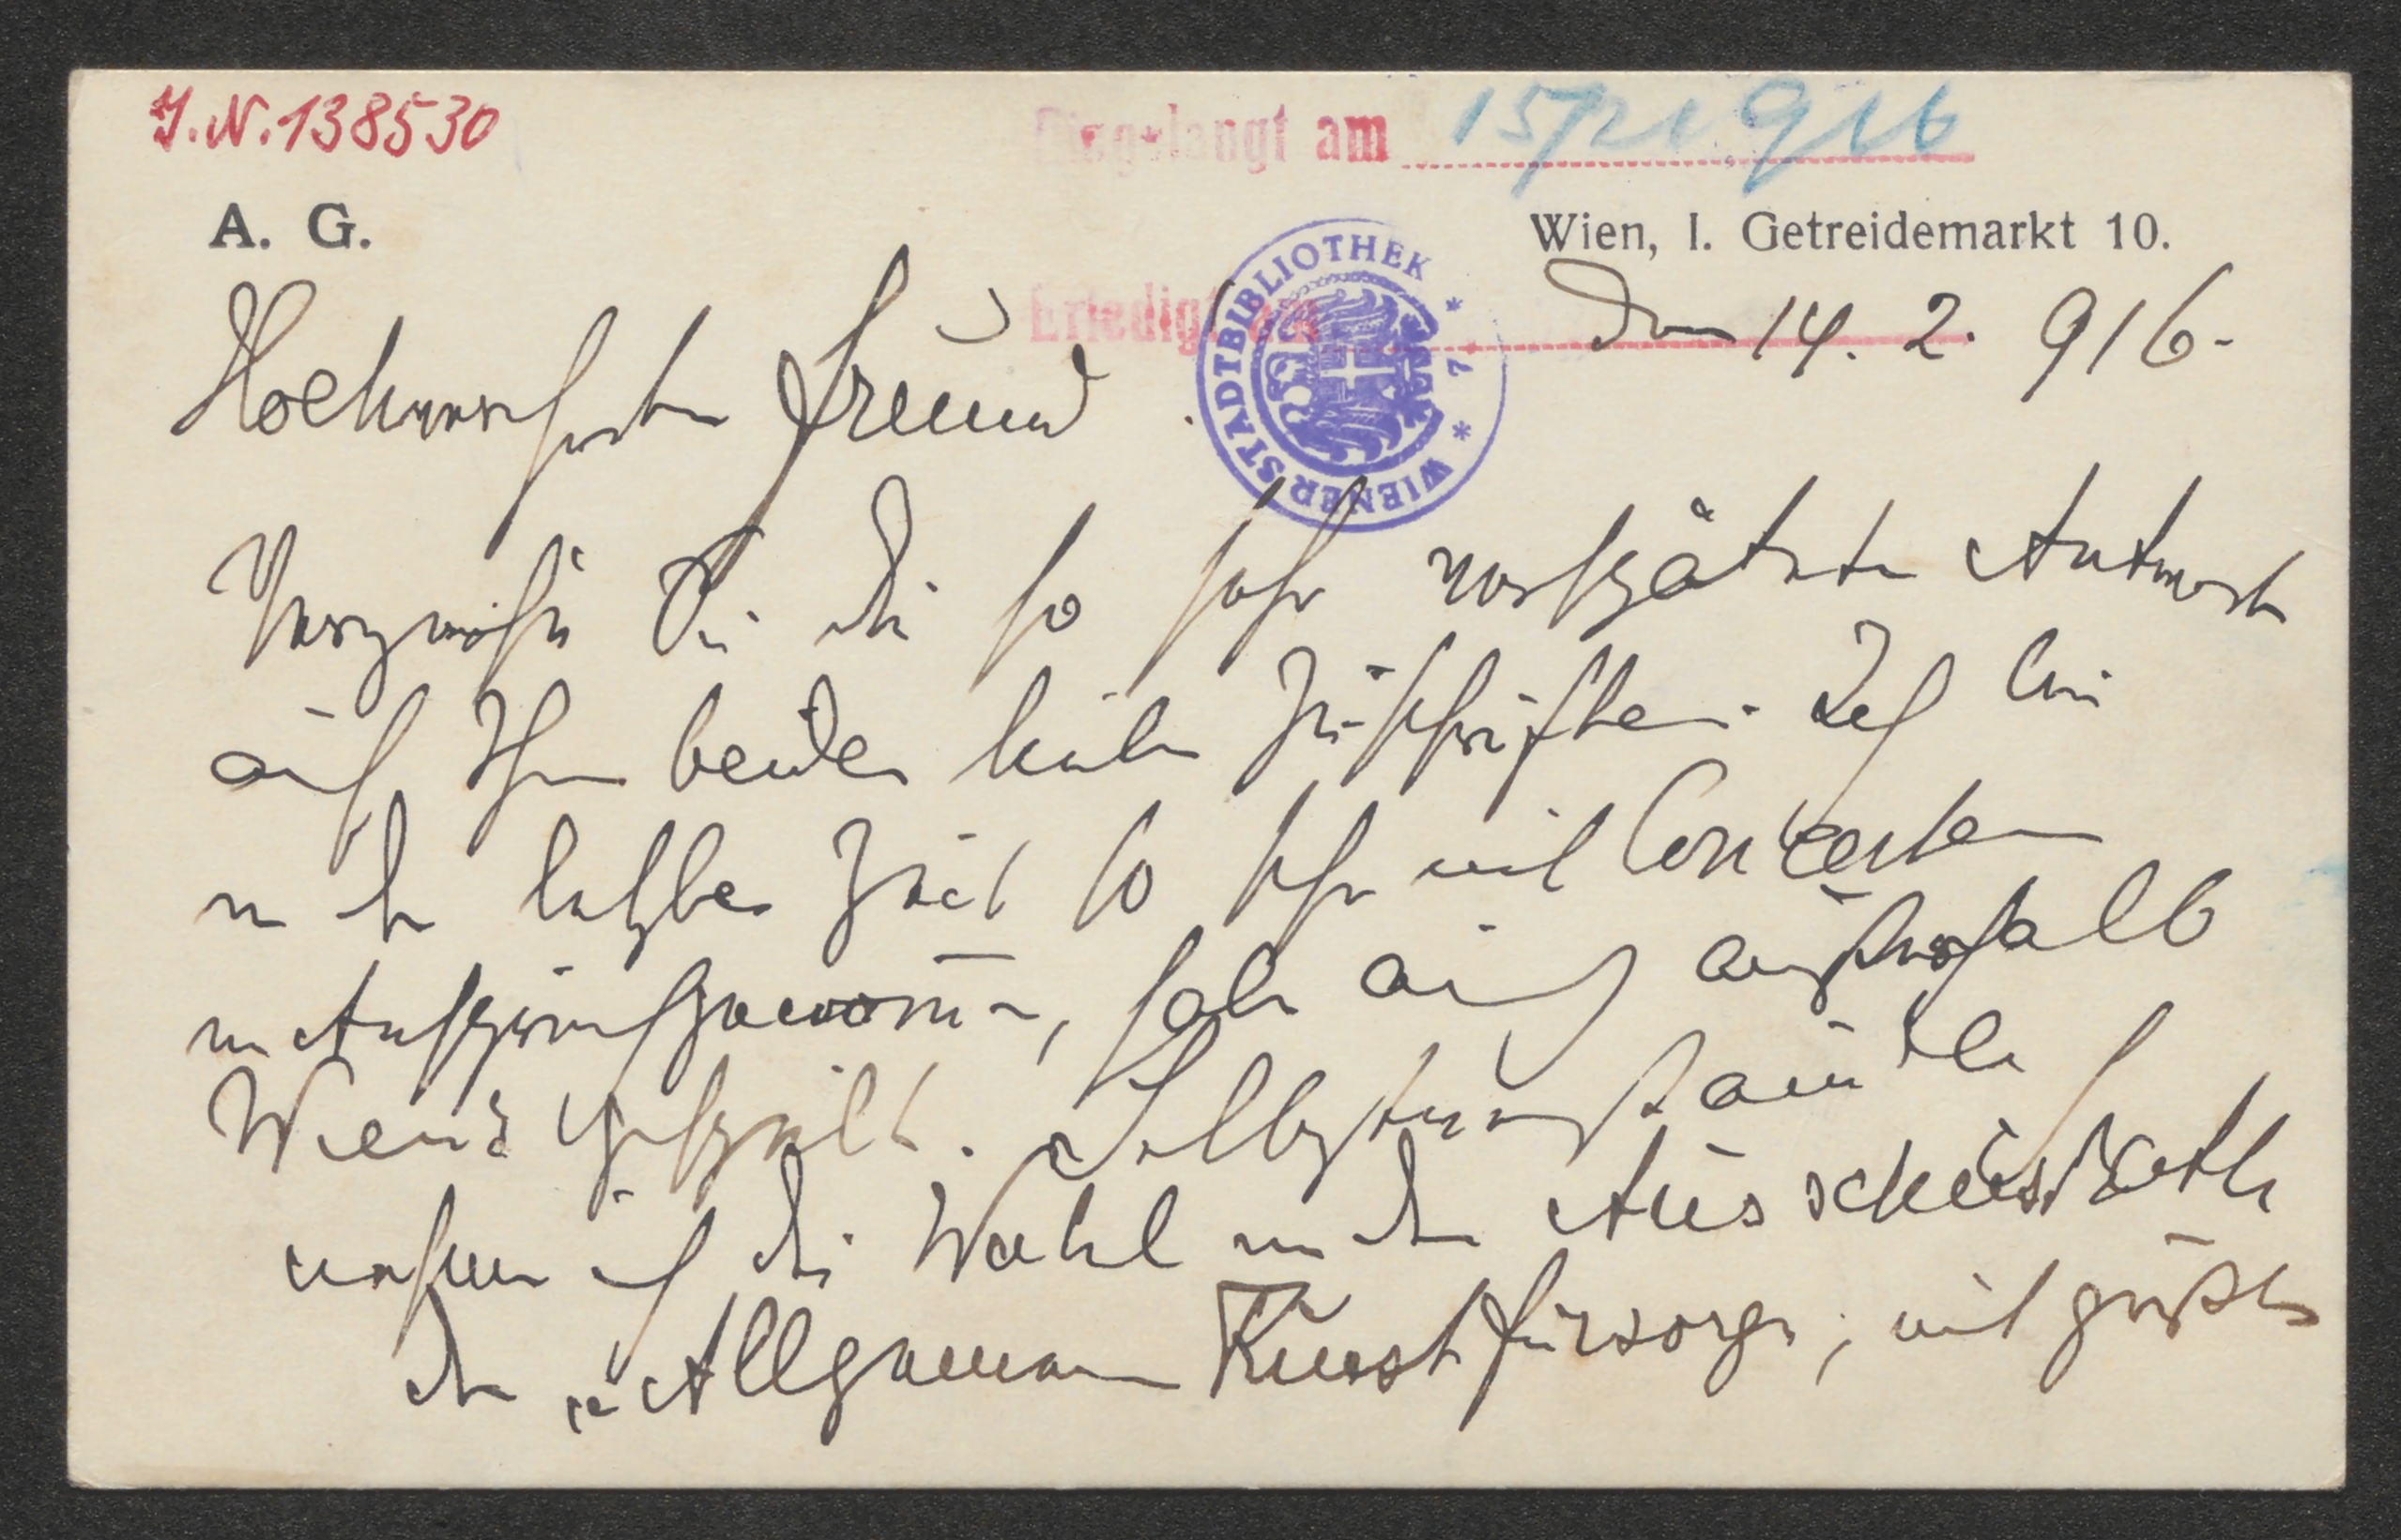 J.N. 138530
Eingelangt am 15/2 1916
A. G.
Wien, I. Getreidemarkt 10.
WIENER STADTBIBLIOTHEK * 7 *
Erledigt am
den 14. 2. 916.
Hochverehrter Freund
Verzeihen Sie die so sehr verspätete Antwort
auf Ihre beiden lieben Zuschriften. Ich bin
in der letzten Zeit so sehr mit Concerten
in Anspruch genom̄en, habe auch außerhalb
Wiens gespielt. Selbstverständlich
nehme ich die Wahl in den
der „Allgemeinen Kunstfürsorge; mit größter